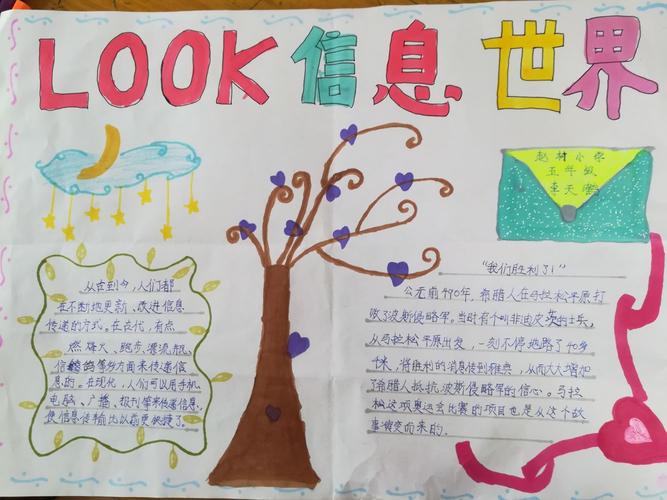 LOOK信息世界
赵村小学
五年级
李天鹅
从古到今，人们都
在不断地更新、改进信息
传递的方式。在古代，有点
燃烽火、跑步、漂流瓶、
信鸽等多方面来传递信
息的。在现代，人们可以用手机、
电脑、广播、报刊等来传递信息，
使信息传输比以前更快捷了。
"我们胜利了！"
公元前490年，希腊人在马拉松平原打
败了波斯侵略军。当时有个叫菲迪皮茨的士兵，
从马拉松平原出发，一刻不停地跑了40多
千米，将胜利的消息传到雅典，从而大大增加
了希腊人抵抗波斯侵略军的信心。马拉
松这项奥运会比赛的项目也是从这个故
事演变而来的。